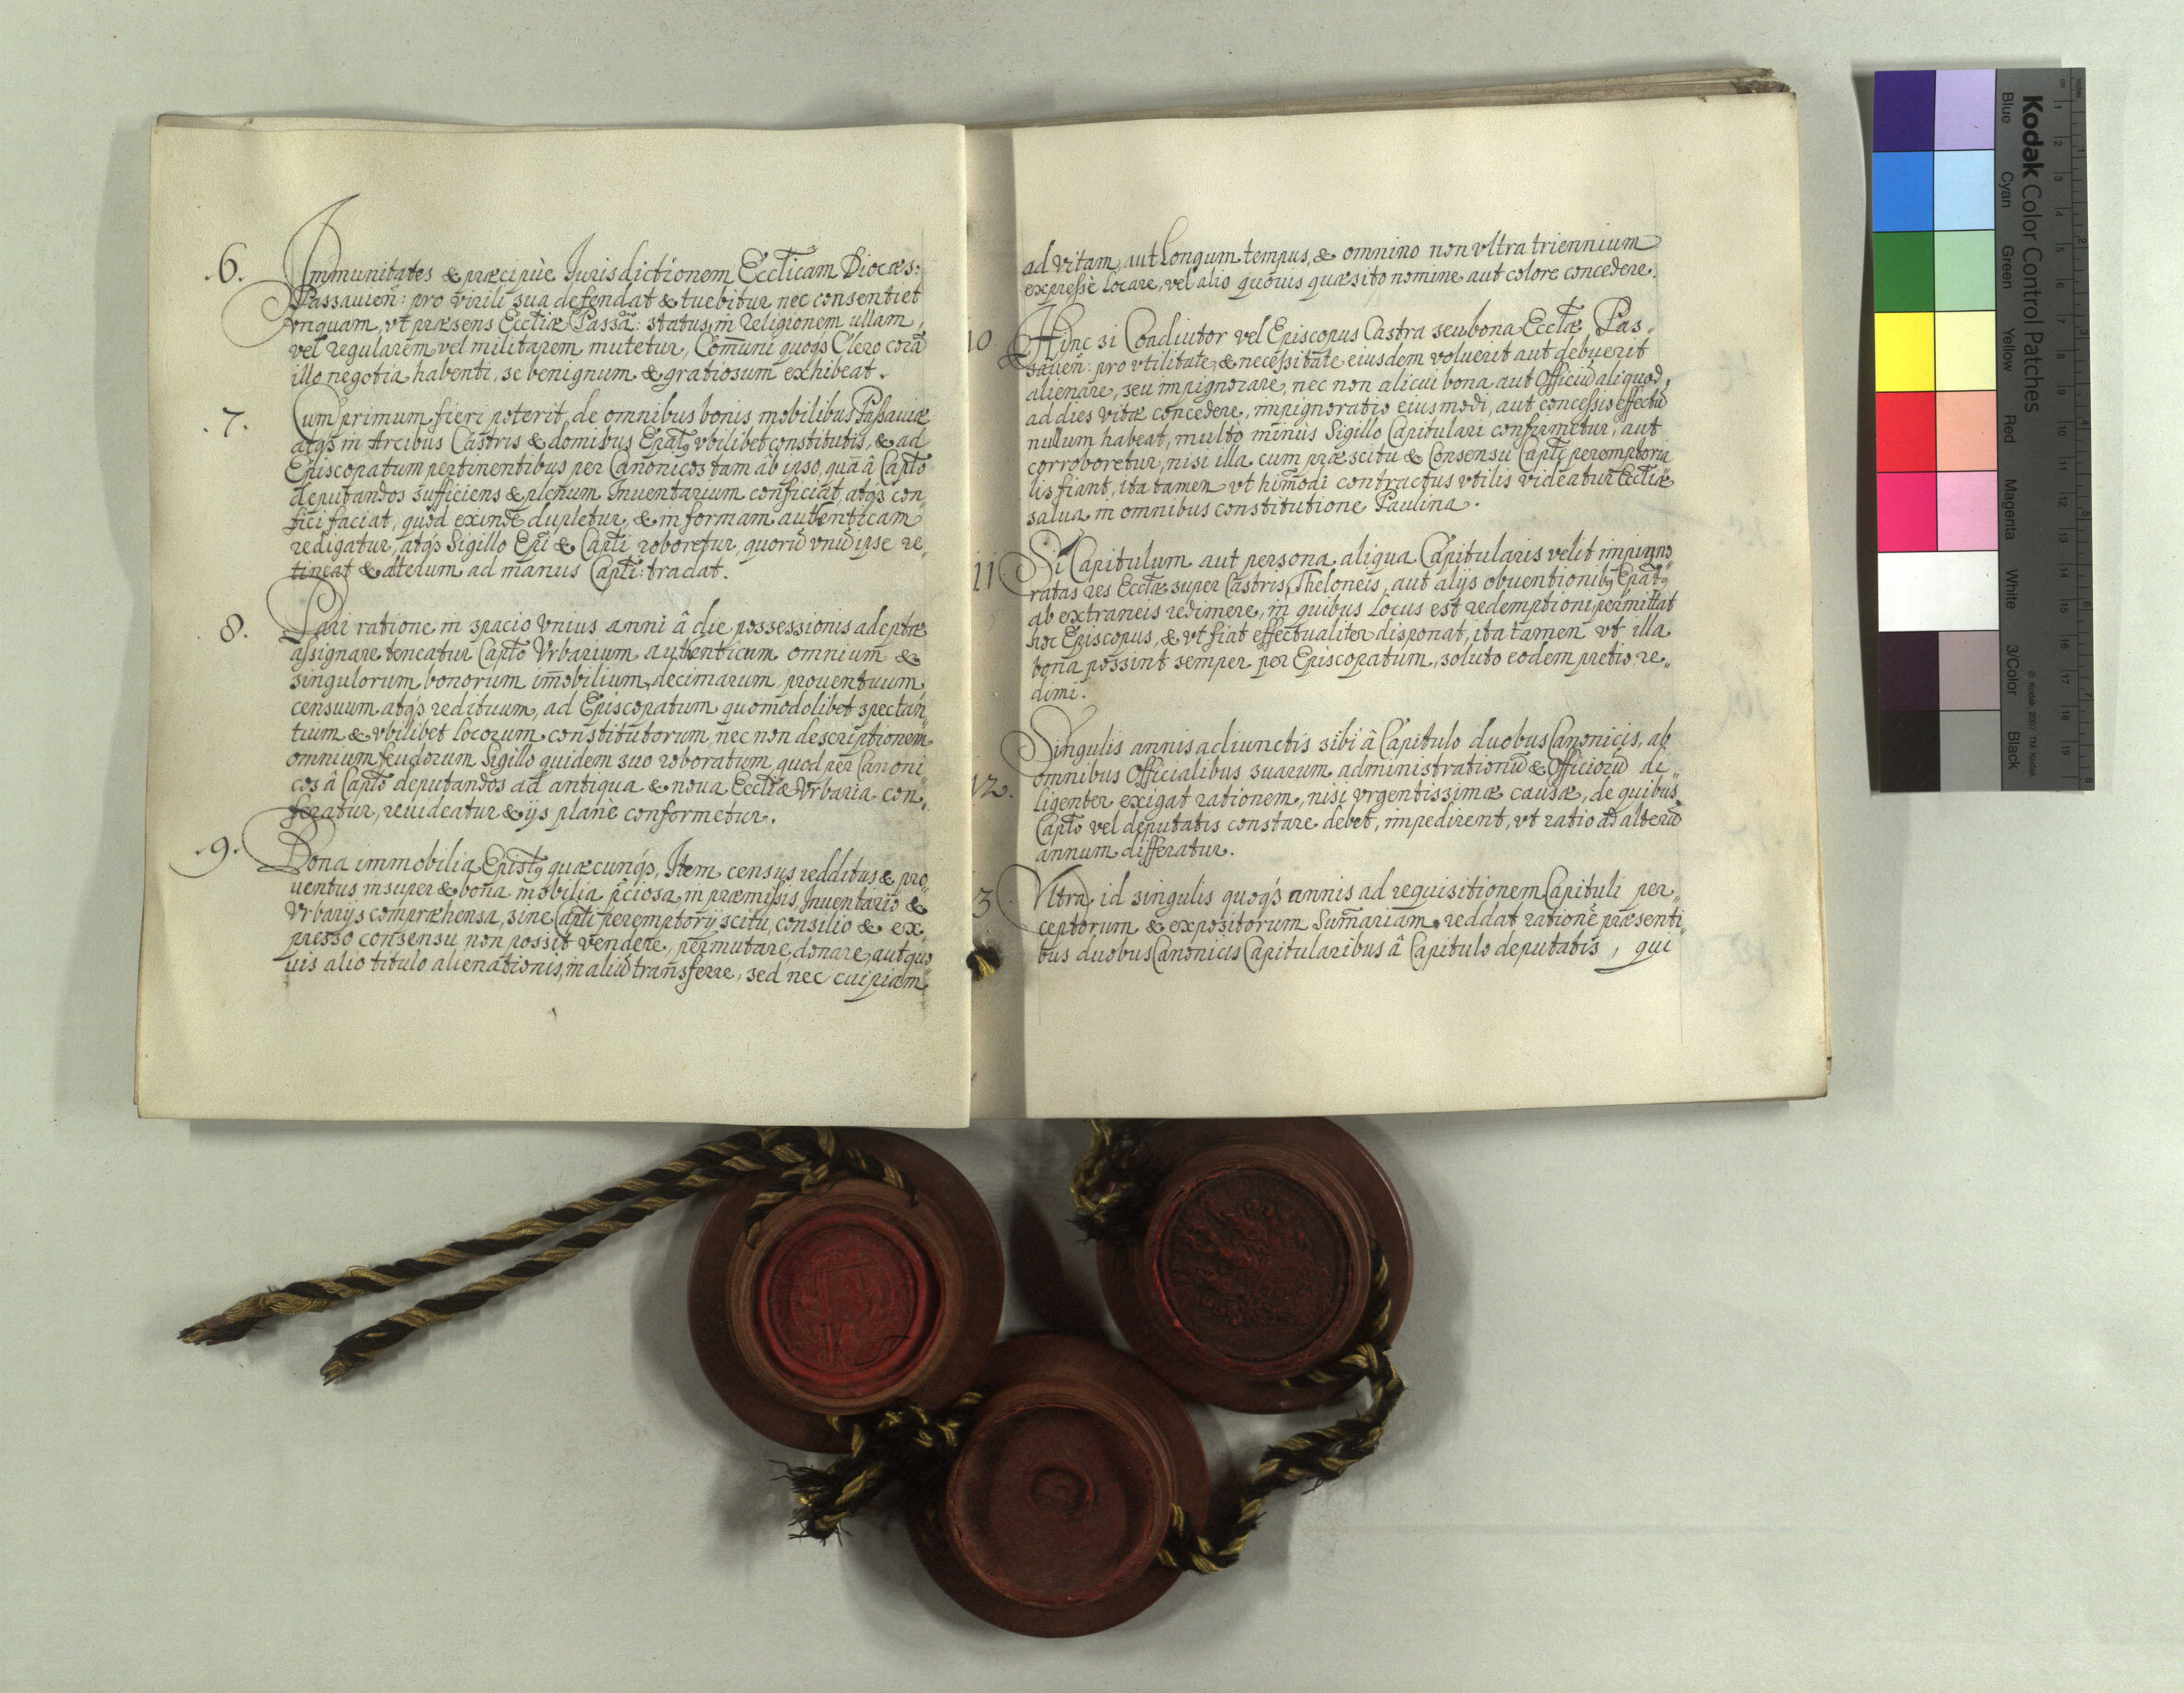 .6. Immunitates & præcipuè Jurisdictionem Eccl̃icam Diocæs:
Passauien̄: pro virili sua defendat & tuebitur nec consentiet
vnquam, vt præsens Eccl̃iæ Passa͠: status, in religionem ullam,
vel regularem vel militarem mutetur, Com̄uni quoqs Clero corā
illo negotia habenti, se benignum & gratiosum exhibeat.
.7. Cum primum fieri poterit, de omnibus bonis mobilibus Passauiæ
atqs in Arcibus Castris & domibus Ep̃at9 vbilibet constitutis, & ad
Episcopatum pertinentibus per Canonicos tam ab ipso, quā â Cap̃to
deputandos sufficiens & plenum Inuentarium conficiat, atqs con„
fici faciat, quod exinde dupletur, & in formam authenticam
redigatur, atqs Sigillo Ep̃i & Cap̃ti roboretur, quorū vnū ipse re„
tineat & alterum ad manus Cap̃ti: tradat.
.8. Pari ratione in spacio vnius anni â die possessionis adeptæ
assignare teneatur Cap̃to Vrbarium authenticum omnium &
singulorum bonorum im̄obilium, decimarum, prouentuum
censuum atqs redituum, ad Episcopatum quomodolibet spectan„
tium & vbilibet locorum constitutorum, nec non descriptionem
omnium feudorum Sigillo quidem suo roboratum, quod per Canoni„
cos â Cap̃to deputandos ad antiqua & noua Eccl̃iæ Vrbaria con„
feratur, reuideatur & ijs planè conformetur.
.9. Bona immobilia Epist9 quæcunqs, Item census redditus & pro„
uentus insuper & bona mobilia p̄ciosa, in præmissis Inuentario &
Vrbarijs compræhensa, sine Cap̃ti peremptorij scitu, consilio & ex„
presso consensu non possit vendere, permutare, donare, aut quo„
uis alio titulo alienationis, in aliū transferre, sed nec cuipiam
ad vitam, aut Longum tempus, & omnino non vltra triennium
expressè locare, vel alio quouis quæsito nomine aut colore concedere.
10. Hinc si Coadiutor vel Episcopus Castra seu bona Eccl̃æ Pas„
sauien̄: pro vtilitate, & necessitate eiusdem voluerit aut debuerit
alienare, seu impignorare, nec non alicui bona aut Officiū aliquod,
ad dies vitæ concedere, impignoratio eiusmodi, aut concessio effectū
nullum habeat, multò minùs Sigillo Capitulari confirmetur, aut
corroboretur, nisi illa cum præscitu & Consensu Cap̃ti peremptoria
lis fiant, ita tamen vt hmōdi contractus vtilis videatur Eccl̃iæ
salua in omnibus constitutione Paulina.
11 Si Capitulum aut persona aliqua Capitularis velit impigno„
ratas res Eccl̃æ super Castris, Theloneis, aut alijs obuentionib9 Ep̃at9
ab extraneis redimere, in quibus Locus est redemptioni, permittat
hoc Episcopus, & vt fiat effectualiter disponat, ita tamen vt illa
bona possint semper per Episcopatum, soluto eodem pretio, re„
dimi.
12. Singulis annis adiunctis sibi â Capitulo duobus Canonicis, ab
omnibus Officialibus suarum administrationū & Officiorū di„
ligenter exigat rationem, nisi vrgentissimæ causæ, de quibus
Cap̃to vel deputatis constare debet, impedirent, vt ratio ad alterū
annum differatur.
3 Vltra id singulis quoqs annis ad requisitionem Capituli per„
ceptorum & expositorum Sum̄ariam reddat rationē præsenti„
bus duobus Canonicis Capitularibus â Capitulo deputatis, qui
Kodak Color Control Patches
Blue Cyan Green Yellow Red Magenta White 3/Color Black
© Kodak, 2007 TM: Kodak